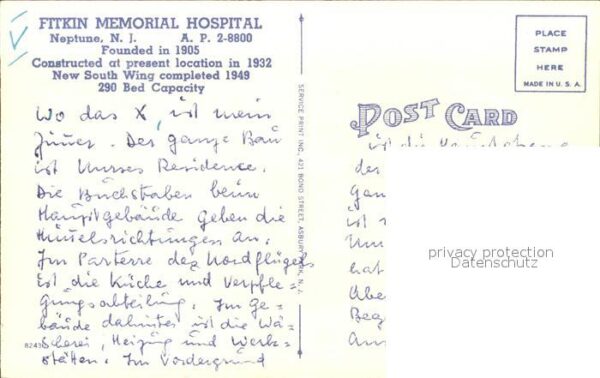 FITKIN MEMORIAL HOSPITAL
Neptune, N. J. A. P. 2-8800
Founded in 1905
Constructed at present location in 1932
New South Wing completed 1949
290 Bed Capacity
Wo das X, ist mein
Zimmer. Der ganze Bau
ist Nurses Residence.
Die Buchstaben beim
Hauptgebäude geben die
Himmelsrichtungen an.
Im Parterre des Nordflügels
ist die Küche und Verpfle-
gungsabteilung. Im Ge-
bäude dahinter ist die Wä-
scherei, Heizung und Werk-
stätten. Im Vordergrund
8243
SERVICE PRINT INC., 421 BOND STREET, ASBURY PARK, N. J.
PLACE
STAMP
HERE
MADE IN U. S. A.
POST CARD
ist die
der
Gan
ist
Un
hat
Abe
Beg
privacy protection
Datenschutz